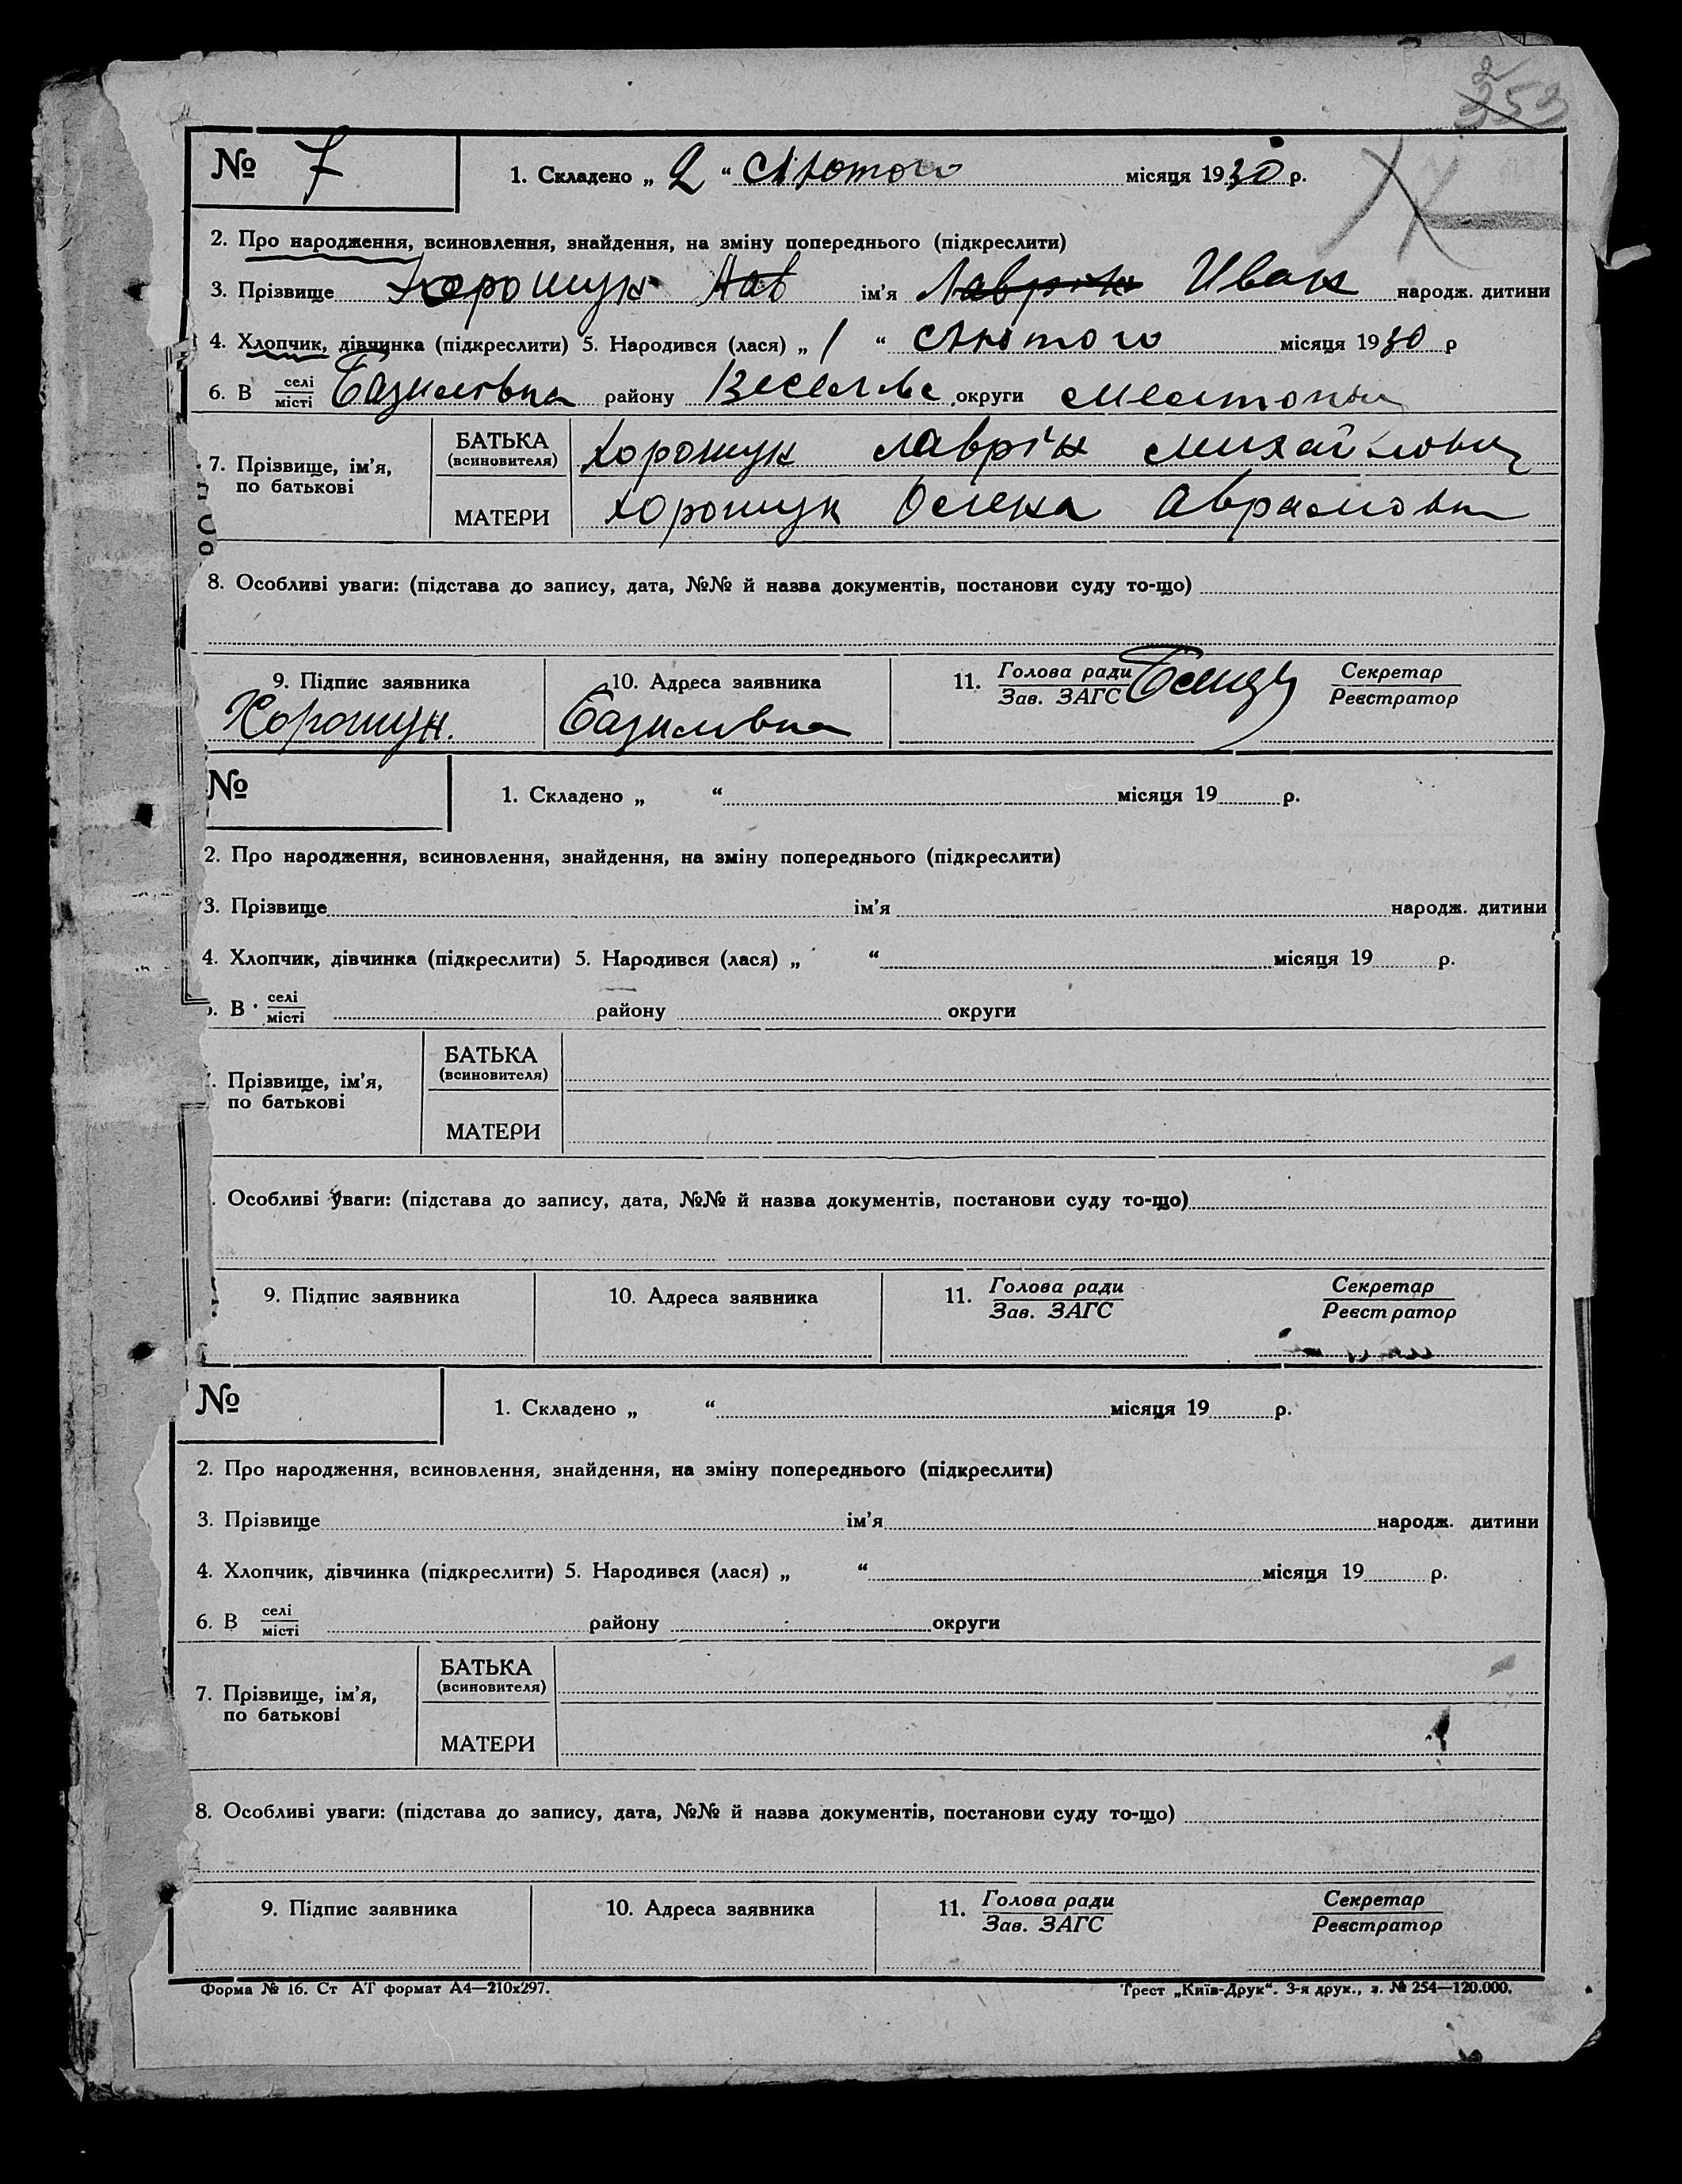 353
№ 7 1. Складено „ 2 “ Лютого місяця 1930 р.
2. Про народження, всиновлення, знайдення, на зміну попереднього (підкреслити)
3. Прізвище Хорошук ім’я Лаврін Иван народж. дитини
4. Хлопчик, дівчинка (підкреслити) 5. Народився (лася) „ 1 “ Лютого місяця 1930 р
6. В селі/місті Базилівка району Веселівс округи Мелитопы
7. Прізвище, ім’я, по батькові БАТЬКА (всиновителя) Хорошук Лаврін Михайлович
МАТЕРИ Хорошук Олена Аврамовна
8. Особливі уваги: (підстава до запису, дата, №№ й назва документів, постанови суду то-що)
9. Підпис заявника 10. Адреса заявника 11. Голова ради/Зав. ЗАГС Секретар/Реєстратор
Хорошун. Базилівка
№ 1. Складено „ “ місяця 19 р.
2. Про народження, всиновлення, знайдення, на зміну попереднього (підкреслити)
3. Прізвище ім’я народж. дитини
4. Хлопчик, дівчинка (підкреслити) 5. Народився (лася) „ “ місяця 19 р.
. В селі/місті району округи
. Прізвище, ім’я, по батькові БАТЬКА (всиновителя)
МАТЕРИ
. Особливі уваги: (підстава до запису, дата, №№ й назва документів, постанови суду то-що)
9. Підпис заявника 10. Адреса заявника 11. Голова ради/Зав. ЗАГС Секретар/Реєстратор
№ 1. Складено „ “ місяця 19 р.
2. Про народження, всиновлення, знайдення, на зміну попереднього (підкреслити)
3. Прізвище ім’я народж. дитини
4. Хлопчик, дівчинка (підкреслити) 5. Народився (лася) „ “ місяця 19 р.
6. В селі/місті району округи
7. Прізвище, ім’я, по батькові БАТЬКА (всиновителя)
МАТЕРИ
8. Особливі уваги: (підстава до запису, дата, №№ й назва документів, постанови суду то-що)
9. Підпис заявника 10. Адреса заявника 11. Голова ради/Зав. ЗАГС Секретар/Реєстратор
Форма № 16. Ст АТ формат А4—210х297. Трест „Київ-Друк“. 3-я друк., з. № 254—120.000.